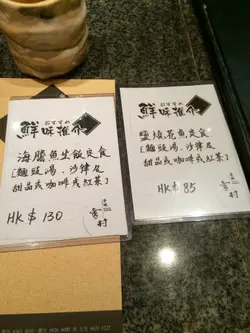 おすすめ
鮮味推介
海膽魚生飯定食
[麵豉湯、沙律及
甜品或咖啡或紅茶]
HK$ 130
おすすめ
鮮味推介
鹽燒花魚定食
[麵豉湯、沙律及
甜品或咖啡或紅茶]
HK$ 85